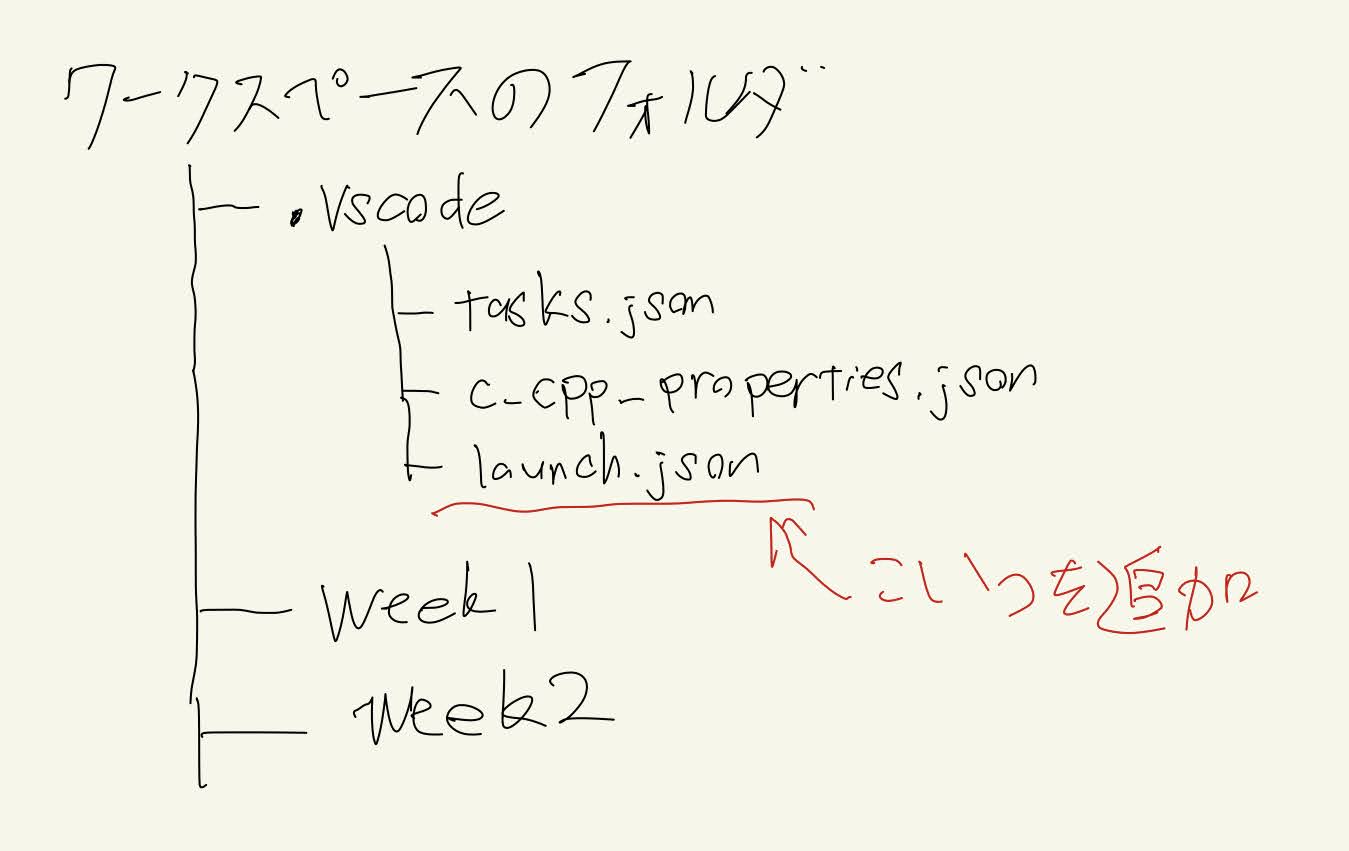 ワークスペースのフォルダ
.vscode
tasks.json
c_cpp_properties.json
launch.json
こいつを追加
week1
week2